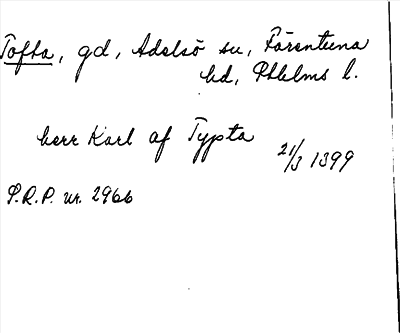 Tofta, gd, Adelsö sn, Färentuna
hd, Sthlms l.
herr Karl af Typta 21/3 1399
S.R.P. nr. 2966